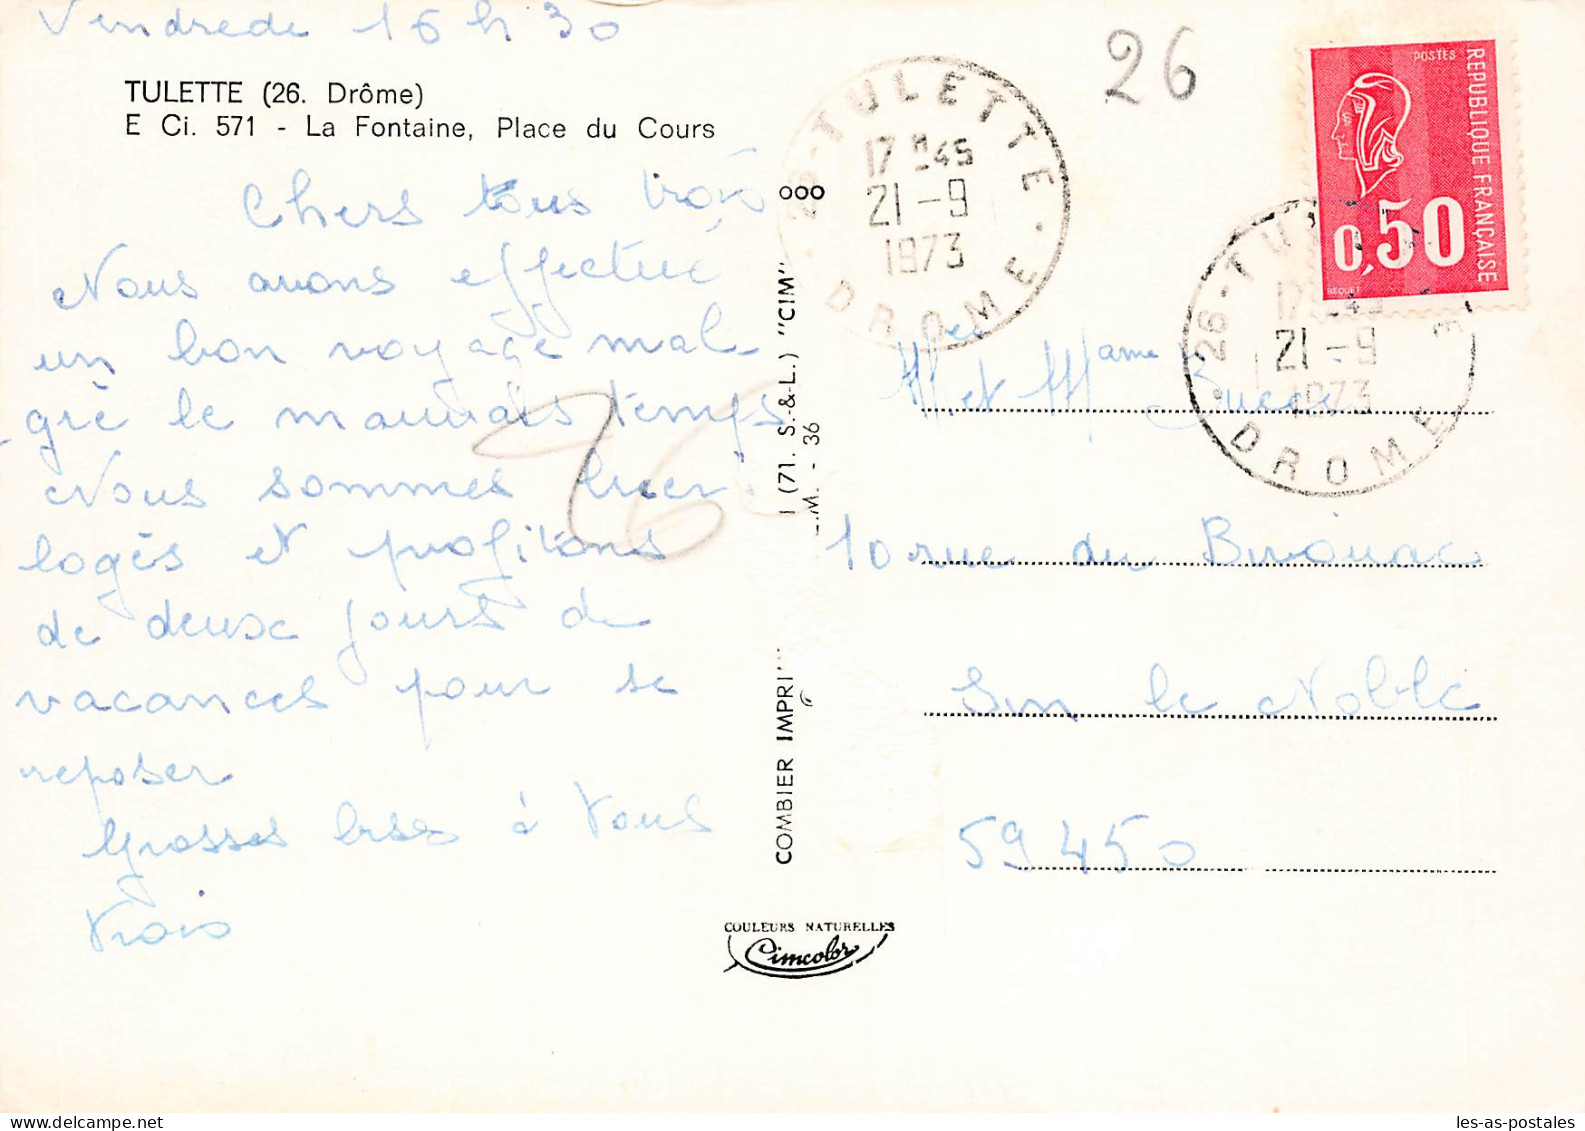 Vendrede 16 h 30
TULETTE (26. Drôme)
E Ci. 571 - La Fontaine, Place du Cours
Chers tous trois
Nous avons effectué
un bon voyage mal-
gré le mauvais temps
Nous sommes bien
logés et profitons
de deux jours de
vacances pour se
reposer
Grosses bises à Vous
Trois
26
26
26-TULETTE
17H45
21-9
1973
DROME
POSTES
REPUBLIQUE FRANÇAISE
0,50
BEQUET
26-TU E
17 45
21-9
1973
DROME
ooo
COMBIER IMPRI (71. S.-&-L.) "CIM"
.M. - 36
Mr et Mame
10 rue du Bivouac
Sin le Noble
59450
COULEURS NATURELLES
Cimcolor
les-as-postales